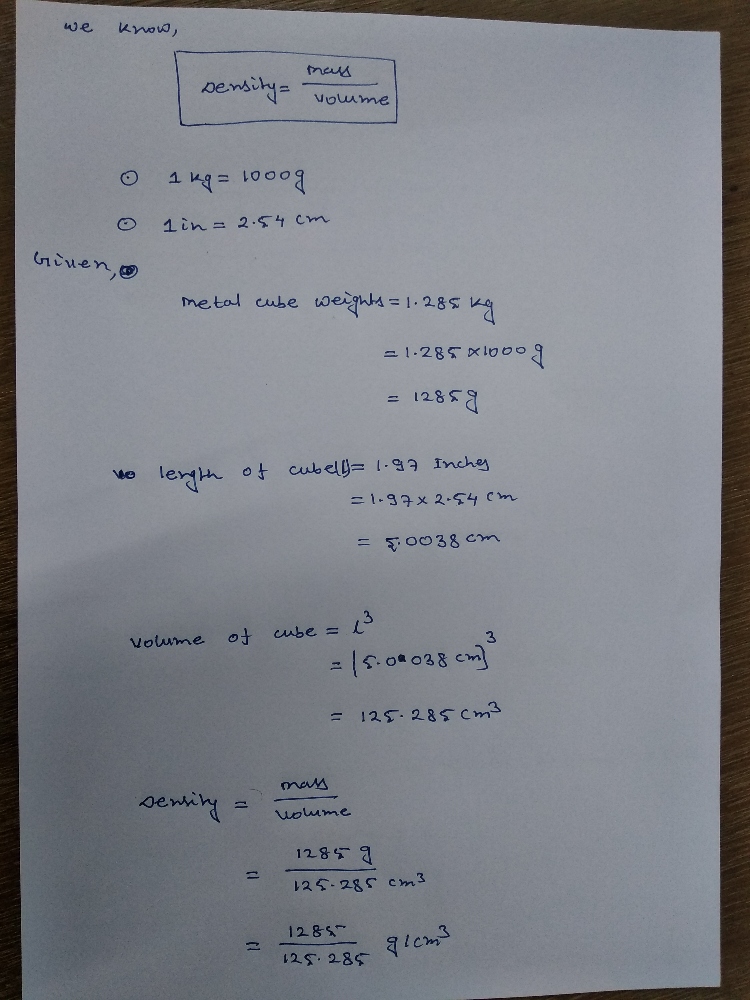 we know,
Density = mass / volume
⊙ 1 kg = 1000g
⊙ 1 in = 2.54 cm
Given,
metal cube weights = 1.285 kg
= 1.285 × 1000 g
= 1285 g
length of cube(l) = 1.97 Inches
= 1.97 × 2.54 cm
= 5.0038 cm
volume of cube = l³
= (5.0038 cm)³
= 125.285 cm³
Density = mass / volume
= 1285 g / 125.285 cm³
= 1285 / 125.285 g/cm³